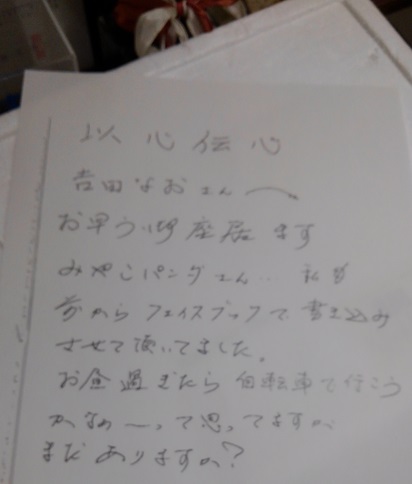 以心伝心
吉田なおさん〜
お早う御座居ます
みやこパンダさん… 私も
前からフェイスブックで書き込み
させて頂いてました。
お昼過ぎたら自転車で行こう
かなぁーって思ってますが
まだありますか?